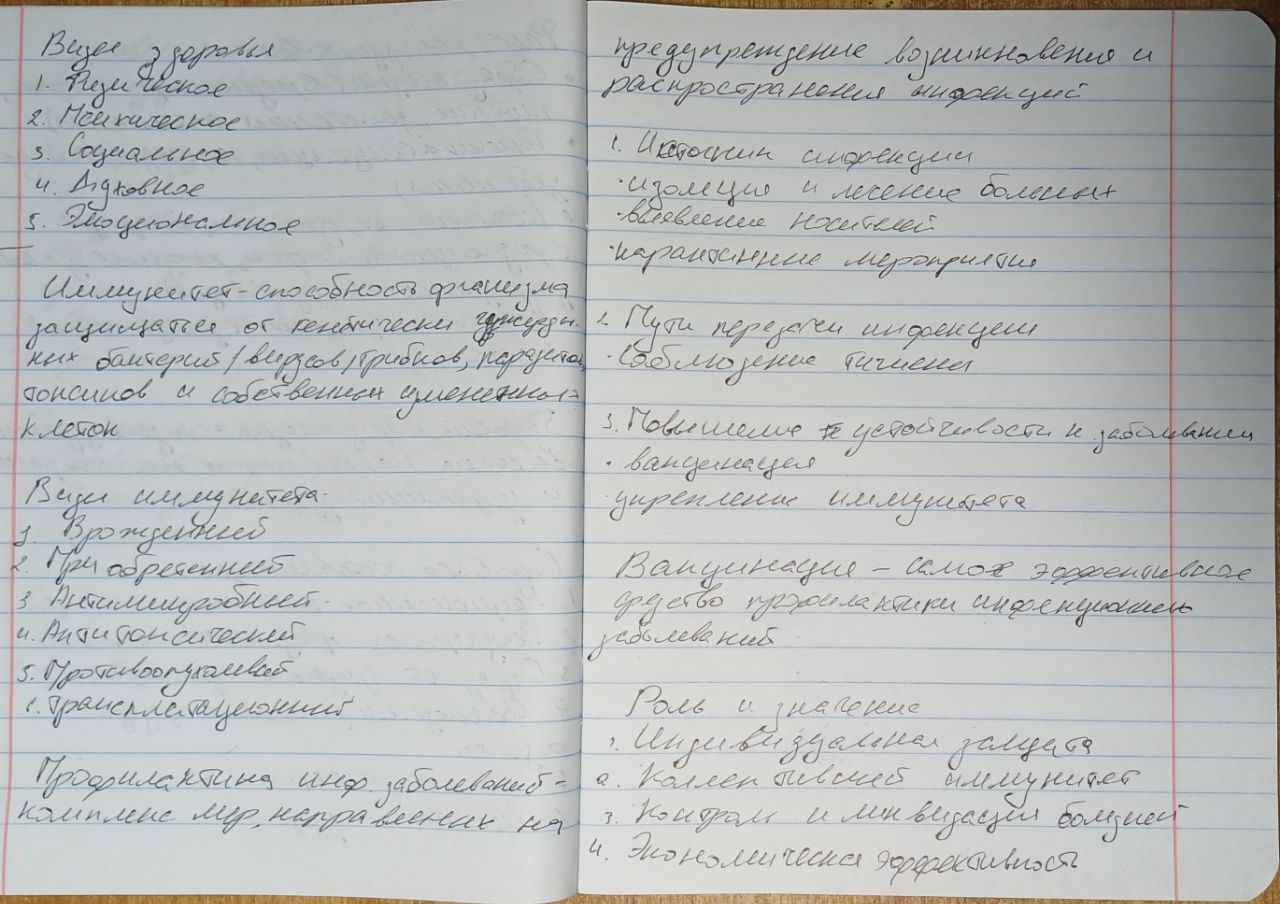 Виды здоровья
1. Физическое
2. Психическое
3. Социальное
4. Духовное
5. Эмоциональное
Иммунитет - способность организма
защищаться от генетически чужерод-
них бактерий/вирусов/грибков, паразитов,
токсинов и собственных измененных
клеток
Виды иммунитета.
1. Врожденный
2. Приобретенный
3. Антимикробный.
4. Антитоксический
5. Противоопухолевый
6. Трансплатационный
Профилактика инф. заболеваний -
комплекс мер, направленных на
предупреждение возникновения и
распространения инфекций
1. Источник инфекции
· изоляция и лечение больных
· выявление носителей
· карантинные мероприятия
2. Пути передачи инфекции
· соблюдение гигиены
3. Повышение устойчивости к заболеванию
· вакцинация
· укрепление иммунитета
Вакцинация – самое эффективное
средство профилактики инфекционных
заболеваний
Роль и значение
1. Индивидуальная защита
2. Коллективный иммунитет
3. Контроль и ликвидация болезней
4. Экономическая эффективность